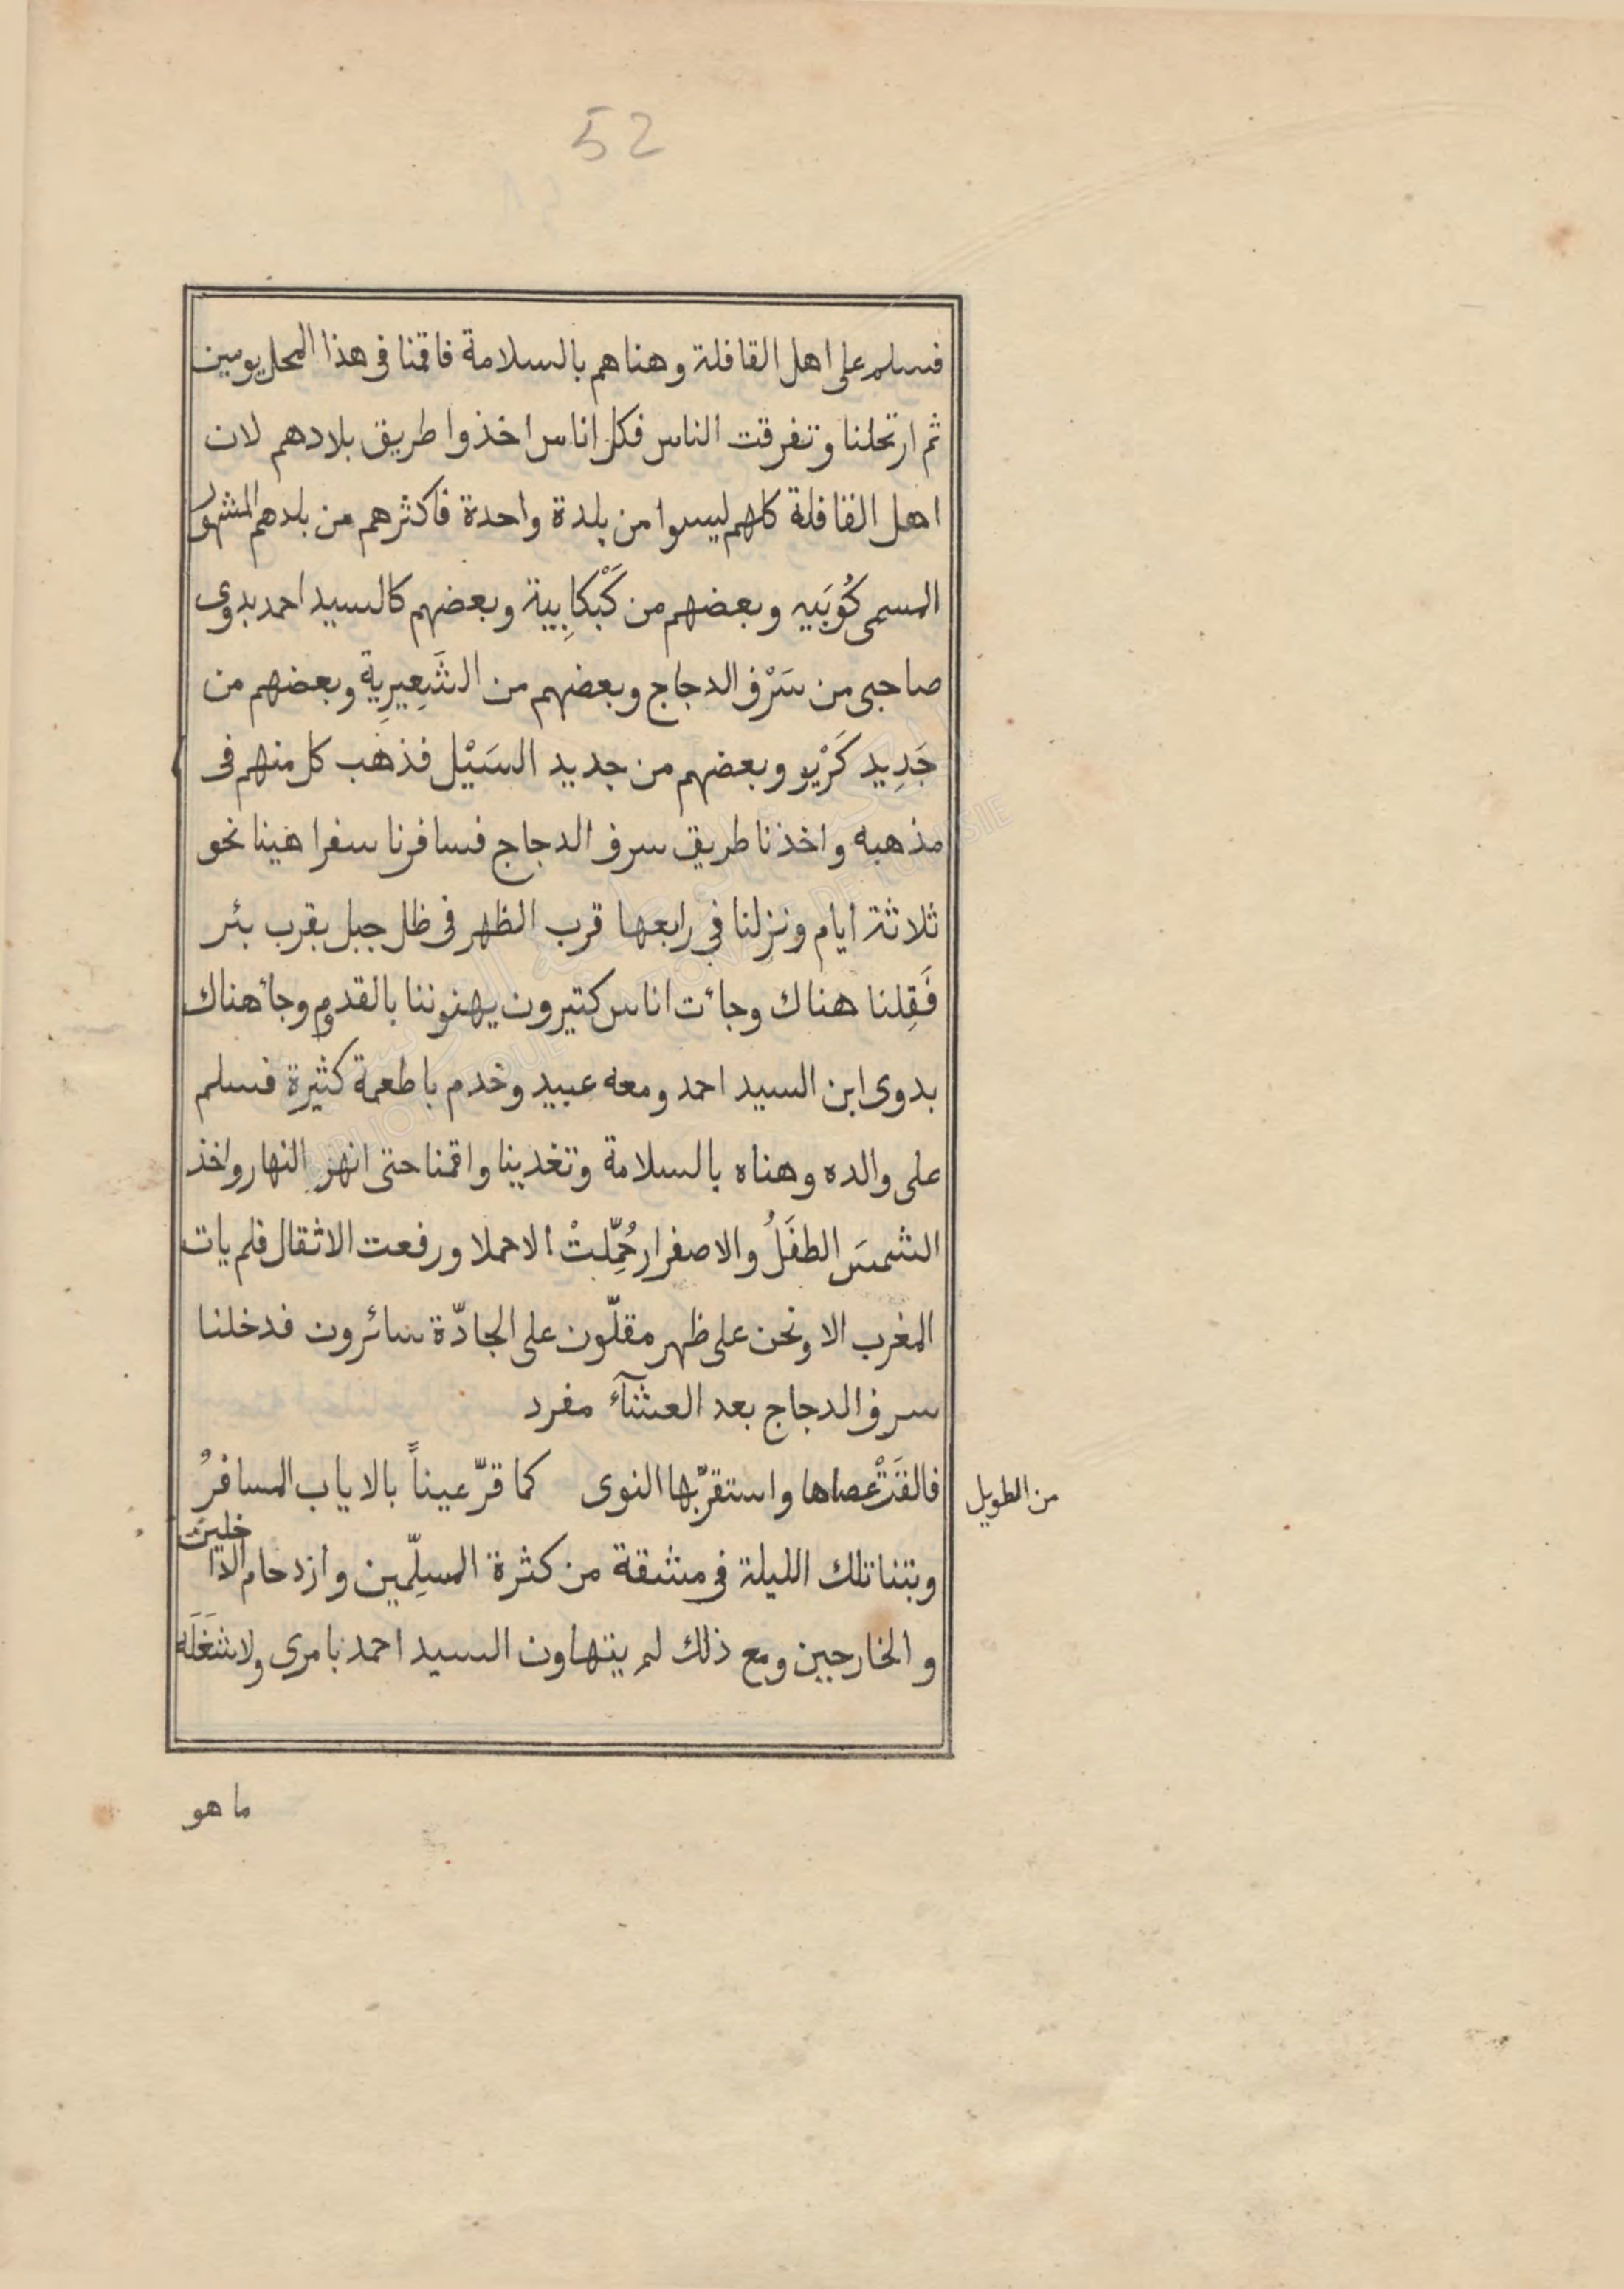 52
فسلم على اهل القافلة وهناهم بالسلامة فاقمنا فى هذا المحل يومين
ثم ارتحلنا وتفرقت الناس فكل اناس اخذوا طريق بلادهم لان
اهل القافلة كلهم ليسوا من بلدة واحدة فاكثرهم من بلدهم المشهور
المسمى كُوبَيه وبعضهم من كَبْكابِية وبعضهم كالسيد احمد بدوى
صاحبى من سَرْف الدجاج وبعضهم من الشَعِيرِية وبعضهم من
جَدِيد كَرْيو وبعضهم من جديد السَيْل فذهب كل منهم فى
مذهبه واخذنا طريق سرف الدجاج فسافرنا سفرا هينا نحو
ثلاثة ايام ونزلنا في رابعها قرب الظهر فى ظل جبل بقرب بئر
فَقِلنا هناك وجائت اناس كتيرون يهنوننا بالقدوم وجأ هناك
بدوى ابن السيد احمد ومعه عبيد وخدم باطعمة كثيرة فسلم
على والده وهناه بالسلامة وتغدينا واقمنا حتى انهزِ النهار واخذ
الشمسَ الطفَلُ والاصفرار حُمِّلتْ الاحملا ورفعت الاثقال فلم يات
المغرب الا ونحن على ظهر مقلّون على الجادّة سائرون فدخلنا
سرف الدجاج بعد العشآء مفرد
فالقتْ عصاها واستقرّ بها النوى كما قرّ عيناً بالاياب المسافرُ
من الطويل
وبتنا تلك الليلة فى مشقة من كثرة المسلِّمين وازدحام الداخلين
والخارجين ومع ذلك لم يتهاون السيد احمد بامرى ولا شَغَلَه
ما هو